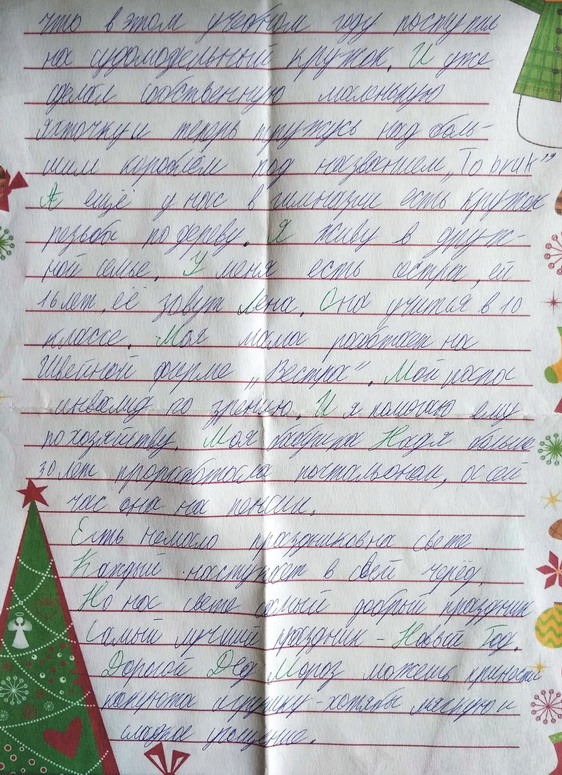 что в этом учебном году поступил
на судомодельный кружок. И уже
сделал собственную маленькую
яхточку и теперь тружусь над боль-
шим кораблём под названием „To brик"
А ещё у нас в гимназии есть кружок
резьбы по дереву. Я живу в друж-
ной семье. У меня есть сестра, ей
16 лет, её зовут Лена. Она учится в 10
классе. Моя мама работает на
Швейной фирме „Вестра". Мой папа
инвалид по зрению. И я помогаю ему
по хозяйству. Моя бабушка Надя больше
30 лет проработала почтальоном, а сей
час она на пенсии.
Есть немало праздников на свете.
Каждый наступает в свой черёд.
Но на свете самый добрый праздник
Самый лучший праздник - Новый Год.
Дорогой Дед Мороз можешь принести
игрушку - хотябы мягкую и
сладкое угощение.